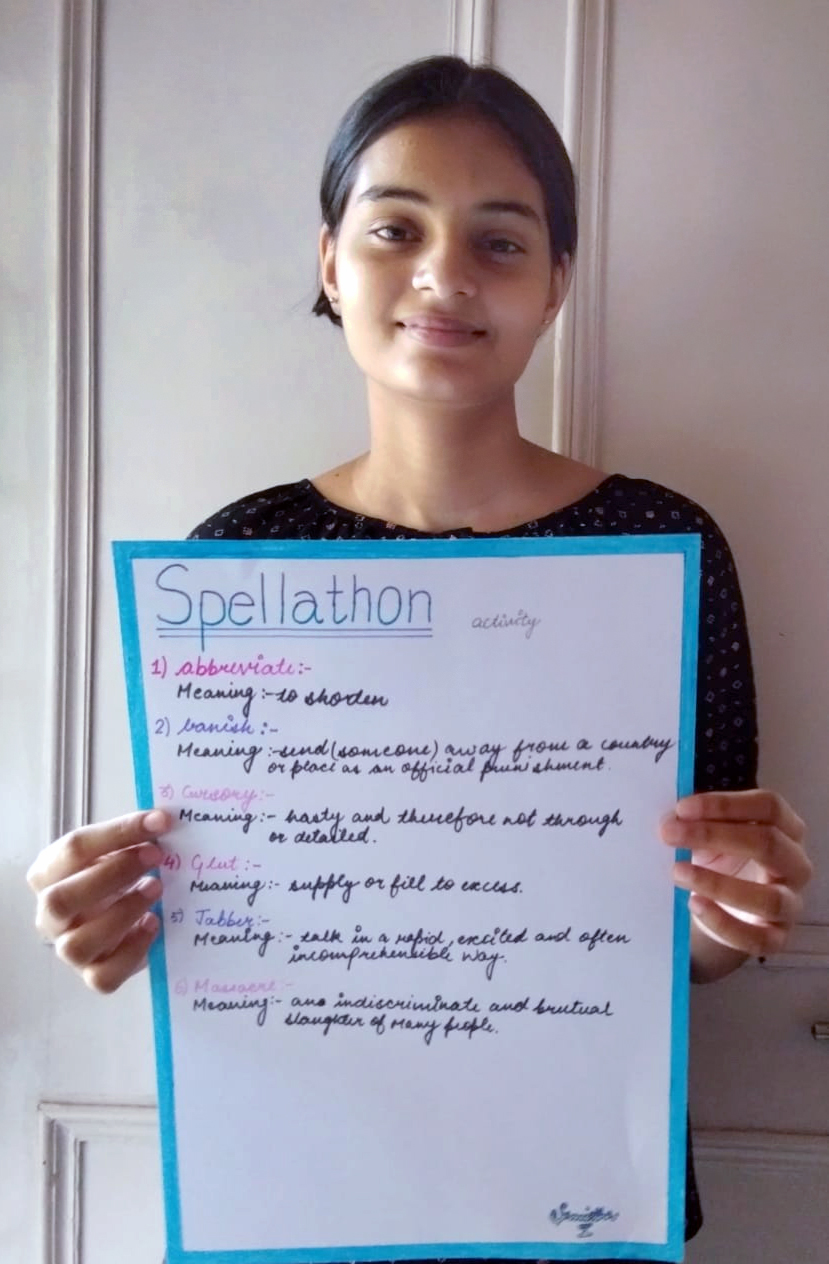 Spellathon activity
1) abbreviate:-
Meaning:- to shorten
2) banish:-
Meaning:- send (someone) away from a country
or place as an official punishment.
3) Cursory:-
Meaning:- hasty and therefore not through
or detailed.
4) Glut:-
Meaning:- supply or fill to excess.
5) Jabber:-
Meaning:- talk in a rapid, excited and often
incomprehensible way.
6) Massacre:-
Meaning:- ano indiscriminate and brutual
slaughter of many people.